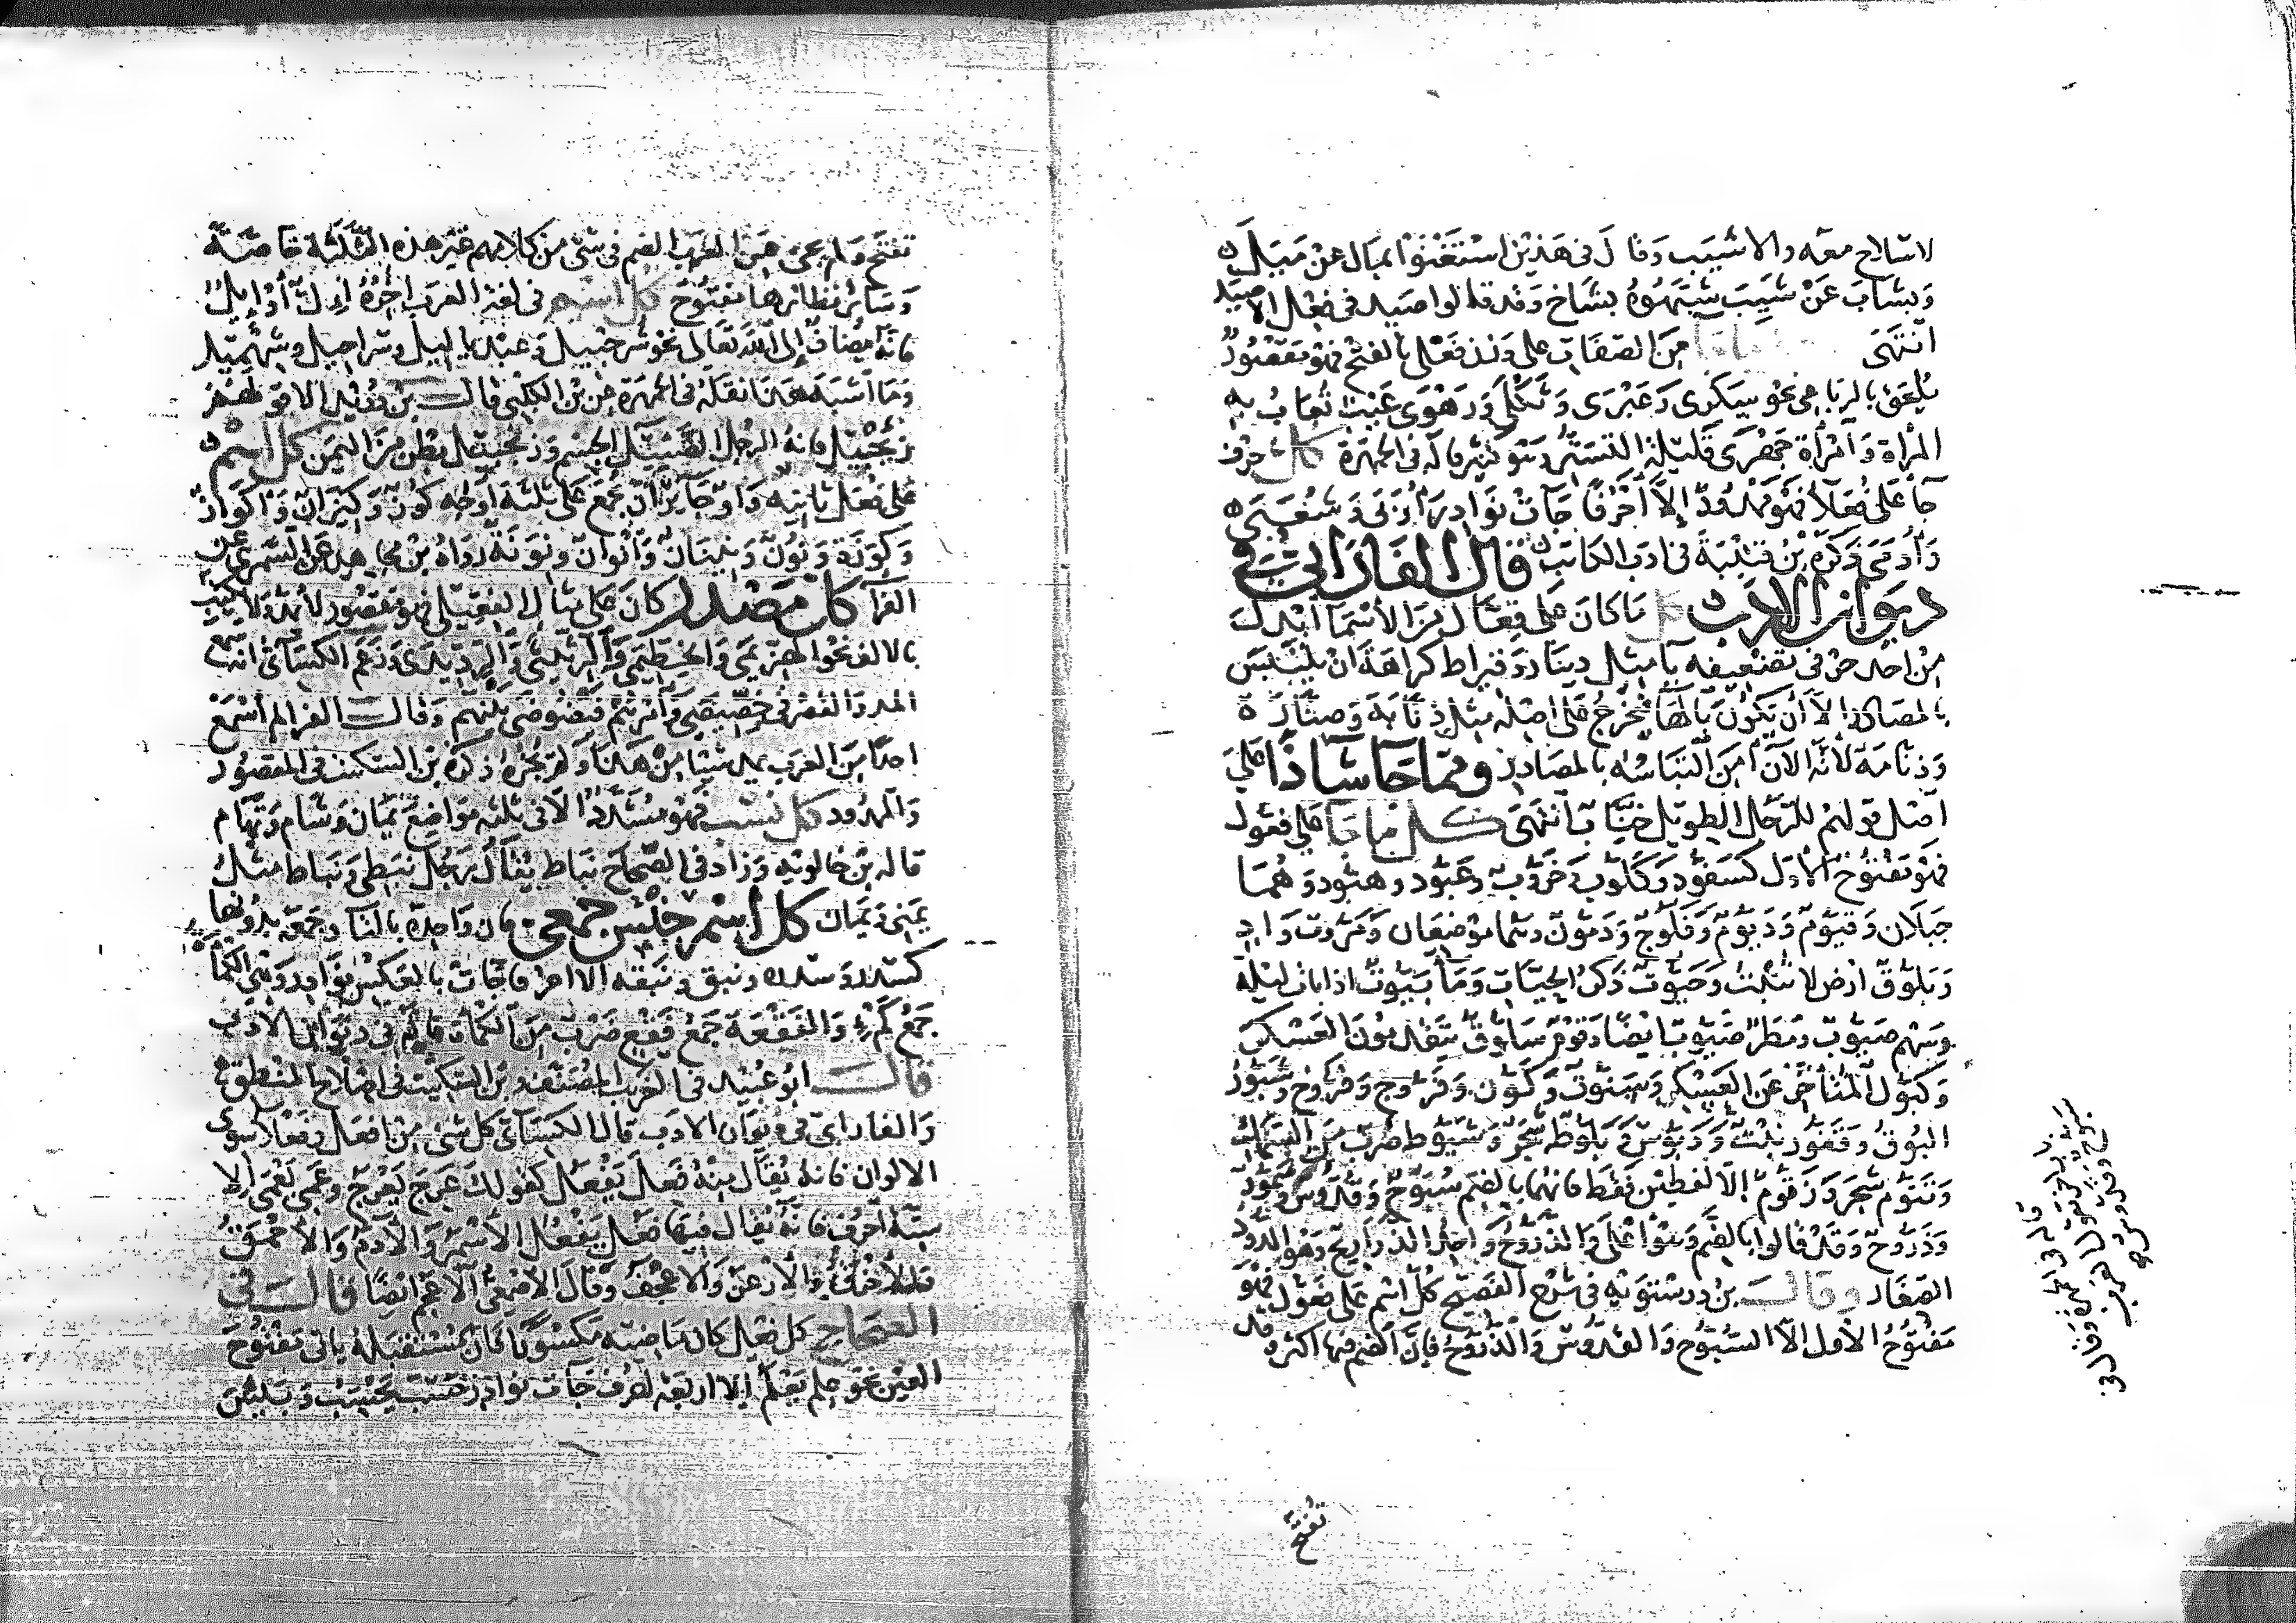 الاسلاح معه والاشيب وقال في هذين استغنوا بمبال عن ميبل
وبشاب عن شيب شبهوه بشاخ وقد قالوا اصيد في فعل الاصيد
انتهى من الصفات على وزن فعلى بالفتح فهو مقصور
ملحق بالرباعي نحو سكرى وعبرى وثكلى ورهوى عيب تعاب به
المراة وامراة جهرى قليلة التستر وهو كثير قاله في الجمهرة كل حرف
جا على فعلا فهو ممدود إلا أحرفا جات نوادر أربى وشعبى
وأدمى ذكره بن قتيبة في ادب الكاتب قال الفارابي في
ديوان الادب كل ما كان على فعال من الأسما ابدل
من احد حرفي تضعيفه يا مثل دينار وقيراط كراهة ان يلتبس
بالمصادر إلا أن يكون بالها فيخرج على اصله مثل ذنابة وصنارة
وذنامة لانه الآن أمن التباسه بالمصادر ومما جا شاذا على
اصله قولهم للرجل الطويل خناب انتهى كل ما جا على فعول
فهو مفتوح الاول كسفود وكلوب وخروب وعبود وهبود وهما
جبلان وقيوم وديوم وفلوج ودمون وهما موضعان ومروت واد
وبلوق ارض لا تنبت وحيوت ذكر الحيات وما بيوت اذا بات ليلة
وسهم صيوب ومطر صيوب ايضا وقوم سلوق يتقدمون العسكر
وكيول المتاخر عن العسكر وسنوت وكمون وفروج وفروخ وشبور
البوق وقفور نبت ودبوس وبلوط شجر وشبوط ضرب من السمك
وتنوم شجر وزقوم إلا لفظين فقط فانهما بالضم سبوح وقدوس وسمور
وذروح وقد قالوا بالضم وهو أعلى والذروح واحد الذراريح وهو الدود
الصغار وقال بن درستويه في شرح الفصيح كل اسم على فعول فهو
مفتوح الاول إلا السبوح والقدوس والذروح فإن الضم فيها اكثر وقد
تفتح
تفتح ولم يجئ عن العرب الضم في شئ من كلامهم غير هذه الثلثة خاصة
وسائر نظائرها مفتوح كل اسم في لغة العرب اخره ال أو ايل
فانه مضاف إلى الله تعالى نحو شرحبيل وعبد ياليل وشراحيل وشهميل
وما اشبه هذا نقله في الجمهرة عن بن الكلبي قال بن دريد الا قولهم
زنجبيل فانه الرجل الضئيل الجسم وزنجبيل بطن من اليمن كل اسم
على فعل ثانيه واو جايز ان يجمع على ثلثة اوجه كوز وكيزان واكواز
وكوزة ونون ونينان وأنوان ونونة رواه بن مجاهد عن السمري عن
الفرا كل مصدر كان على مثال الفعيلى فهو مقصور لا يمد ولا يكتب
بالالف نحو الهزيمى والخطيبى والرثيثى والرديدى وزعم الكسائى انه سمع
المد والقصر في خصيصى وأمرهم فيضوضى بينهم وقال الفرا لم أسمع
احدا من العرب يمد شيئا من هذا ولم يجزه ذكره بن السكيت في المقصور
والممدود كل نسب فهو مشدد الا في ثلثه مواضع يمان وشام وتهام
قاله بن خالويه وزاد في الصحاح نباط يقال رجل نبطي ونباط مثل
يمنى ويمان كل اسم جنس جمعى فان واحده بالتا وجمعه بدونها
كسدر وسدره ونبق ونبقه الا احرفا جات بالعكس نوادر وهي الكمأة
جمع كم والفقعة جمع فقع ضرب من الكماة قاله في ديوان الادب
قال ابو عبيد في الغريب المصنف وبن السكيت في اصلاح المنطق
والفارابي في ديوان الادب قال الكسائى كل شى من افعل وفعلا سوى
الالوان فانه يقال منه فعل يفعل كقولك عرج يعرج وعمى يعمى إلا
ستة احرف فانه يقال فيها فعل يفعل الاسمر والآدم والاحمق
والأخرق والأرعن والاعجف وقال الاصمعى الاعجم ايضا قال في
الصحاح كل فعل كان ماضيه مكسورا فان مستقبله ياتى مفتوح
العين نحو علم يعلم إلا اربعة احرف جات نوادر حسب يحسب ويئس